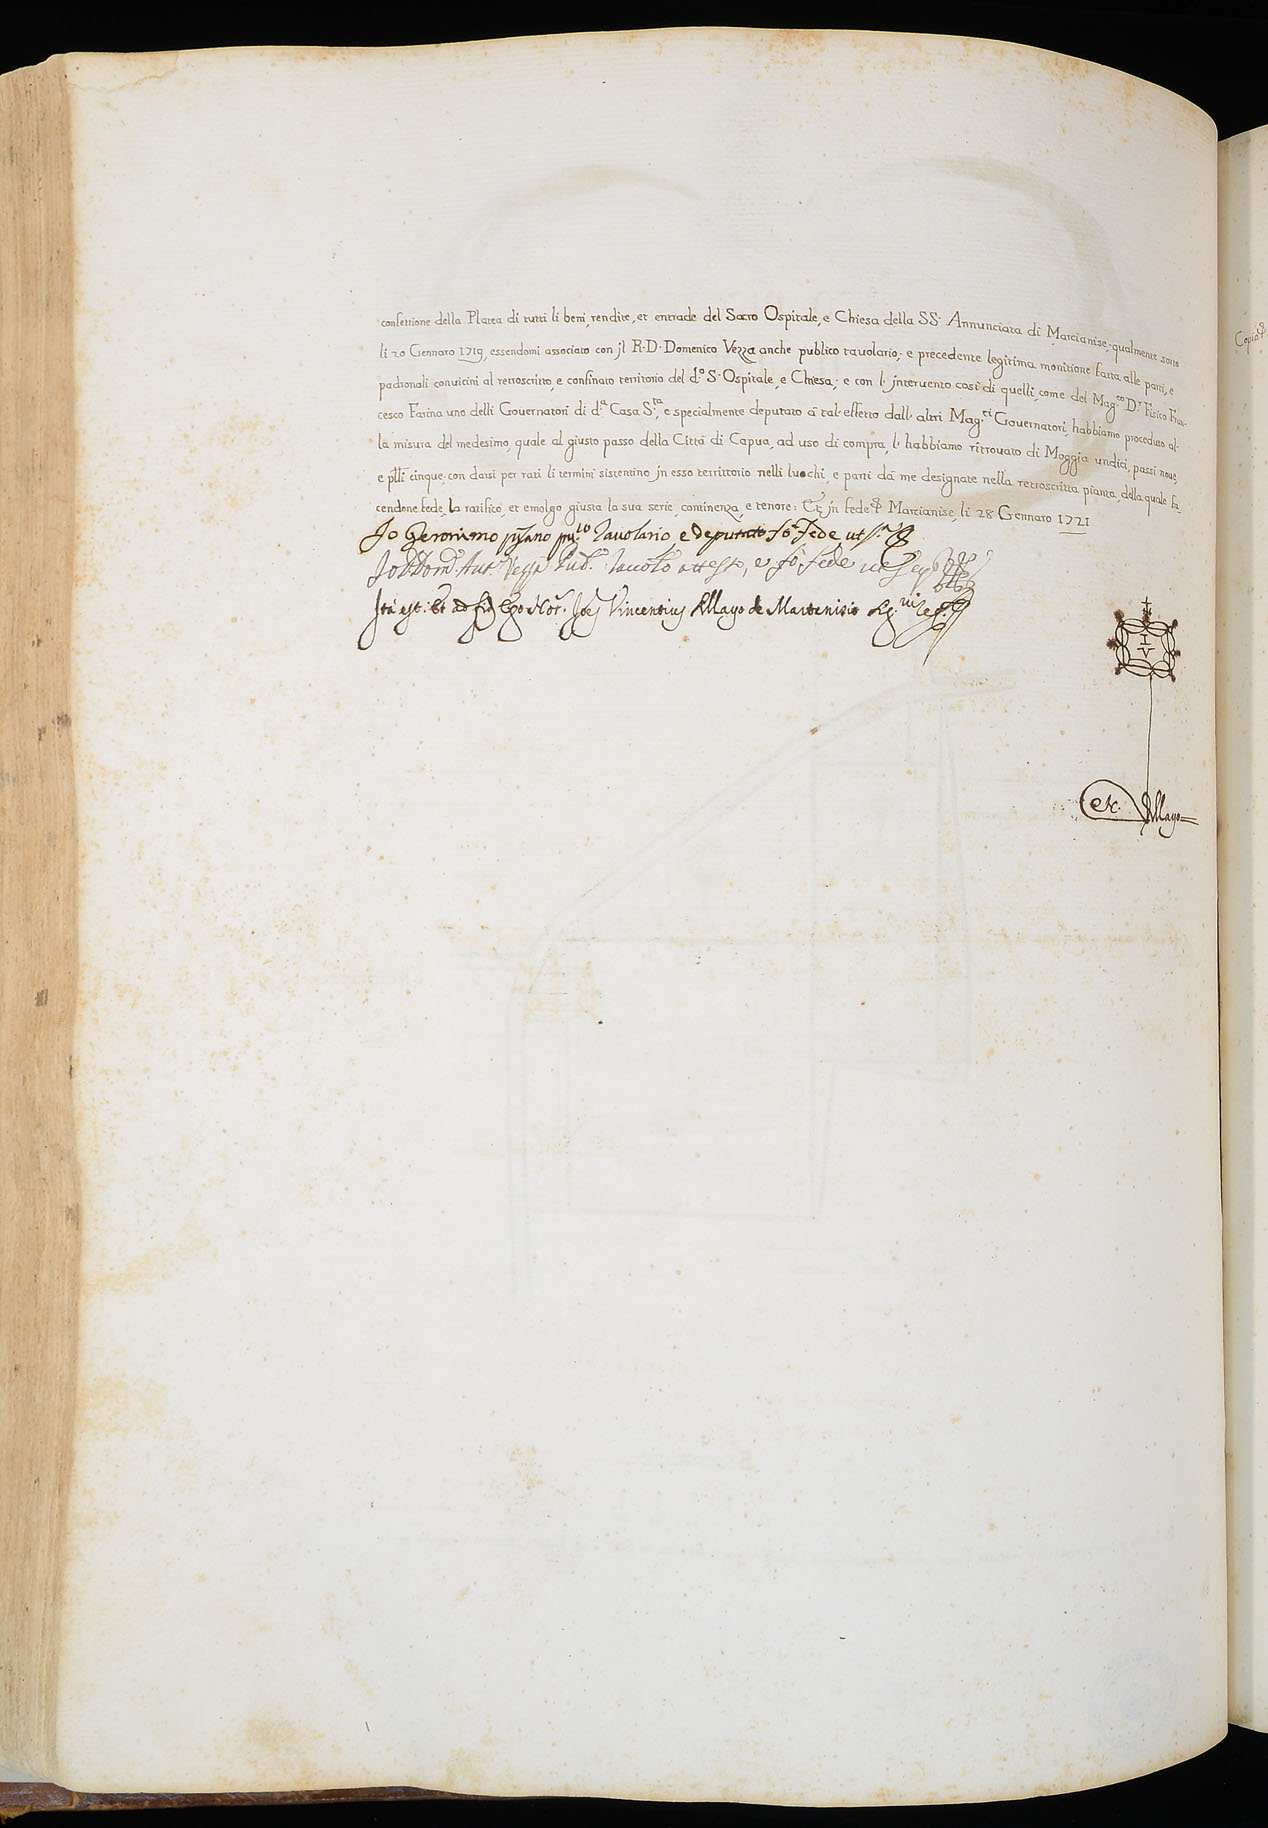 confettione della Platea di tutti li beni, rendite, et entrade del Sacro Ospitale, e Chiesa della SS. Annunciata di Marcianise; qualmente sotto
li 20 Gennaro 1719, essendomi associato con jl R. D. Domenico Vezza anche publico tauolario; e precedente legitima monitione fatta alle parti, e
padronali conuicini al retroscritto, e confinato territorio del d.º S. Ospitale, e Chiesa; e con l' jnteruento così di quelli, come del Mag.co D.r Fisico Fran-
cesco Farina uno delli Gouernatori di d.a Casa S.ta, e specialmente deputato à tal' effetto dall' altri Mag.ci Gouernatori, habbiamo proceduto al-
la misura del medesimo, quale al giusto passo della Città di Capua, ad uso di compra, l' habbiamo ritrouato di Moggia undici, passi noue,
e plli cinque; con darsi per rati li termini sistentino jn esso territtorio nelli luochi, e parti dà me designate nella retroscritta pianta, della quale fa-
cendone fede, la ratifico, et emolgo giusta la sua serie, continenza, e tenore: Et jn fede Marcianise, li 28 Gennaro 1721
Io Geronimo pu.co Tauolario e deputato fò fede ut s.a
Io D. Dom.co Ant.o Vezza Pub.o Tauol.o attesto, e fò fede
Ita est: Et ad fid. Ego Not. Joes Vincentius Mayo de Martenisio
I
V
etc. Mayo
Copia